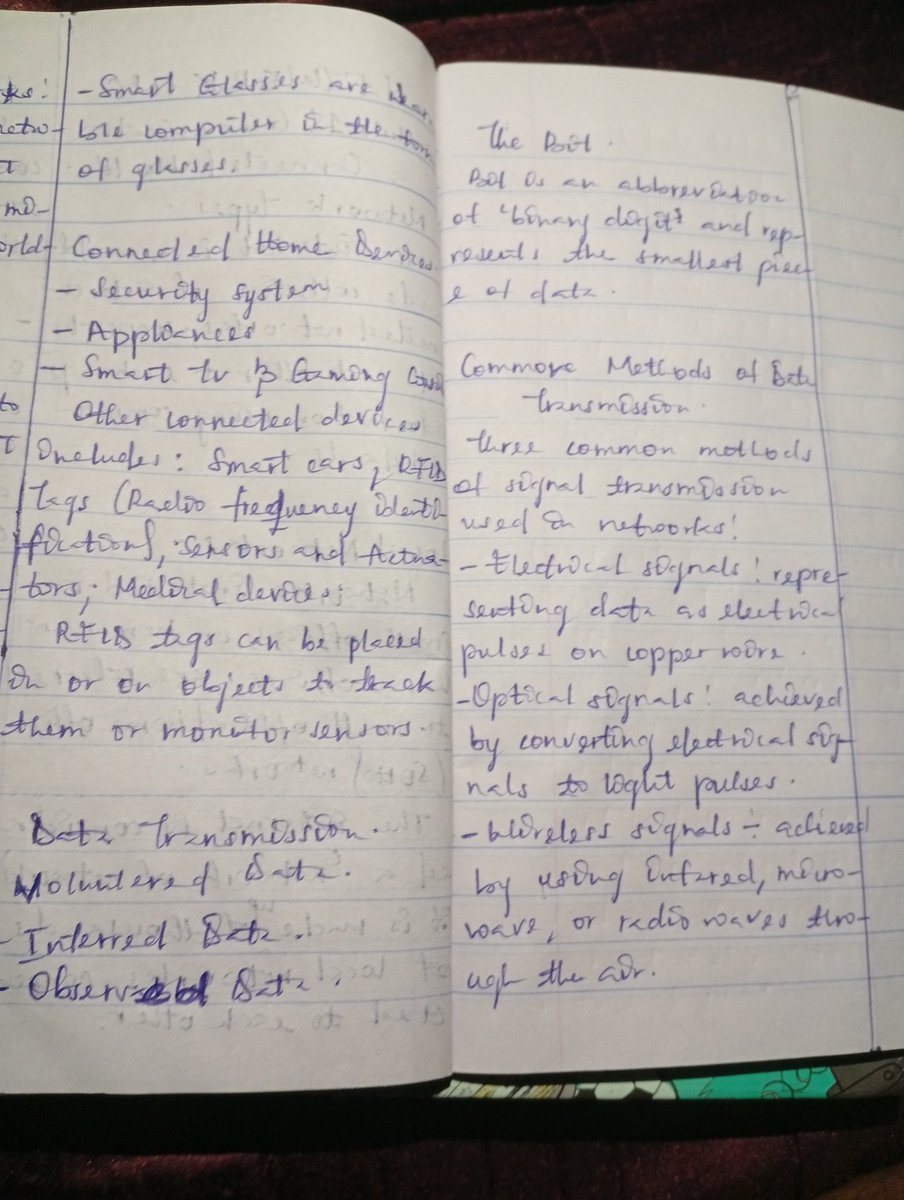 - Smart Glasses are wear
ble computer in the form
of glasses.
Connected Home Devices
- Security system
- Appliances
- Smart tv & Gaming Conso
Other connected devices
Includes: Smart cars, RFID
Tags (Radio frequency identi-
fication), Sensors and Actua-
tors; Medical devices;
RFID tags can be placed
in or on objects to track
them or monitor sensors.
Data Transmission.
Voluntered Data.
- Inferred Data.
- Observed Data.
The Bit.
Bit is an abbreviation
of "binary digit" and rep-
resents the smallest piec
e of data.
Common Methods of Data
Transmission.
Three common methods
of signal transmission
used in networks:
- Electrical signals: repre-
senting data as electrical
pulses on copper wire.
- Optical signals: achieved
by converting electrical sig-
nals to light pulses.
- Wireless signals ÷ achieved
by using infared, micro-
wave, or radio waves thro-
ugh the air.